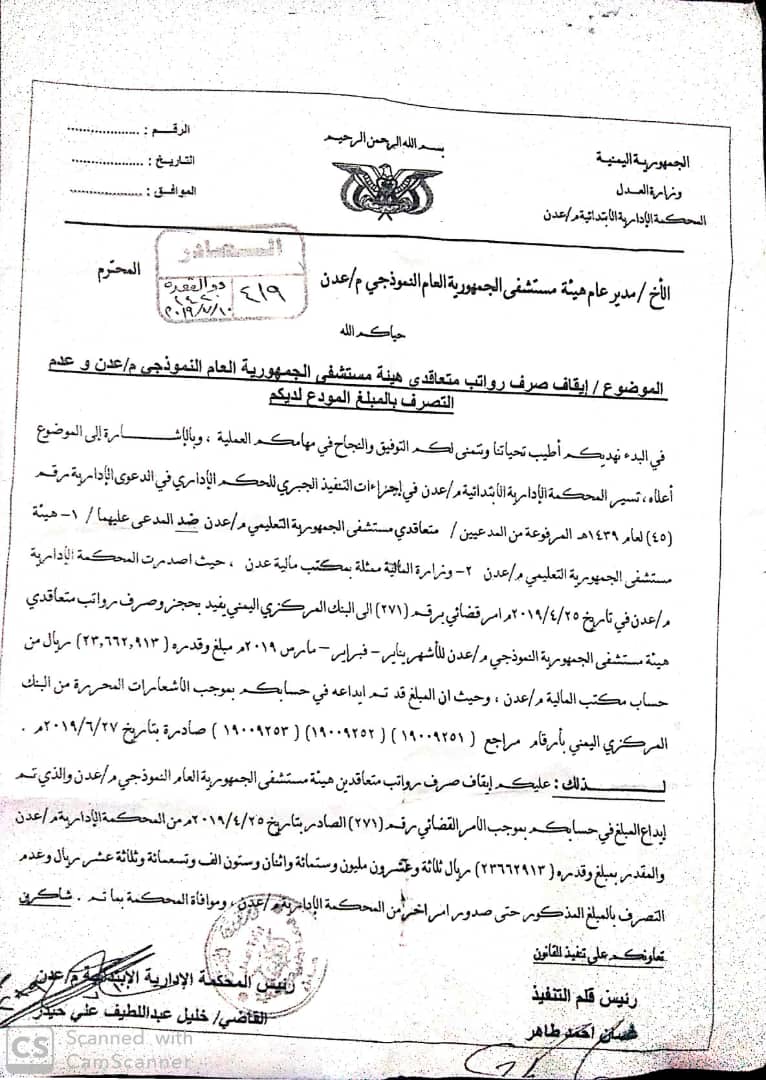 الجمهورية اليمنية
وزارة العدل
المحكمة الإدارية الإبتدائية م/عدن
بسم الله الرحمن الرحيم
الرقم : ..................
التاريخ : ..................
الموافق : ..................
الصادر
٤١٩
ذو القعدة
٢٠١٩/٧/١٠م
الأخ / مدير عام هيئة مستشفى الجمهورية العام النموذجي م/عدن المحترم
حياكم الله
الموضوع / إيقاف صرف رواتب متعاقدي هيئة مستشفى الجمهورية العام النموذجي م/عدن و عدم
التصرف بالمبلغ المودع لديكم
في البدء نهديكم أطيب تحياتنا ونتمنى لكم التوفيق والنجاح في مهامكم العملية ، وبالإشارة إلى الموضوع
أعلاه ، تسير المحكمة الإدارية الأبتدائية م/عدن في إجراءات التنفيذ الجبري للحكم الإداري في الدعوى الإدارية رقم
(٤٥) لعام ١٤٣٩هـ المرفوعة من المدعيين / متعاقدي مستشفى الجمهورية التعليمي م/عدن ضد المدعى عليهما / ١- هيئة
مستشفى الجمهورية التعليمي م/عدن ٢- وزارة المالية ممثلة بمكتب مالية عدن ، حيث اصدرت المحكمة الإدارية
م/عدن في تاريخ ٢٠١٩/٤/٢٥م امر قضائي برقم (٢٧١) الى البنك المركزي اليمني يفيد بحجز وصرف رواتب متعاقدي
هيئة مستشفى الجمهورية النموذجي م/عدن للأشهر يناير – فبراير – مارس ٢٠١٩م مبلغ وقدره (٢٣,٦٦٢,٩١٣) ريال من
حساب مكتب المالية م/عدن ، وحيث ان المبلغ قد تم ايداعه في حسابكم بموجب الأشعارات المحررة من البنك
المركزي اليمني بأرقام مراجع ( ١٩٠٠٩٢٥١) (١٩٠٠٩٢٥٢) ( ١٩٠٠٩٢٥٣ ) صادرة بتاريخ ٢٠١٩/٦/٢٧م .
لـــــذلك : عليكم إيقاف صرف رواتب متعاقدين هيئة مستشفى الجمهورية العام النموذجي م/عدن والذي تم
إيداع المبلغ في حسابكم بموجب الأمر القضائي رقم (٢٧١) الصادر بتاريخ ٢٠١٩/٤/٢٥م من المحكمة الإدارية م/عدن
والمقدر بمبلغ وقدره (٢٣٦٦٢٩١٣) ريال ثلاثة وعشرون مليون وستمائة واثنان وستون الف وتسعمائة وثلاثة عشر ريال وعدم
التصرف بالمبلغ المذكور حتى صدور امر اخر من المحكمة الإدارية م/عدن ، وموافاة المحكمة بما تم . شاكرين
تعاونكم على تنفيذ القانون
رئيس قلم التنفيذ
احمد طاهر
رئيس المحكمة الإدارية الإبتدائية م/عدن
القاضي/ خليل عبداللطيف علي حيدر
CS Scanned with
CamScanner